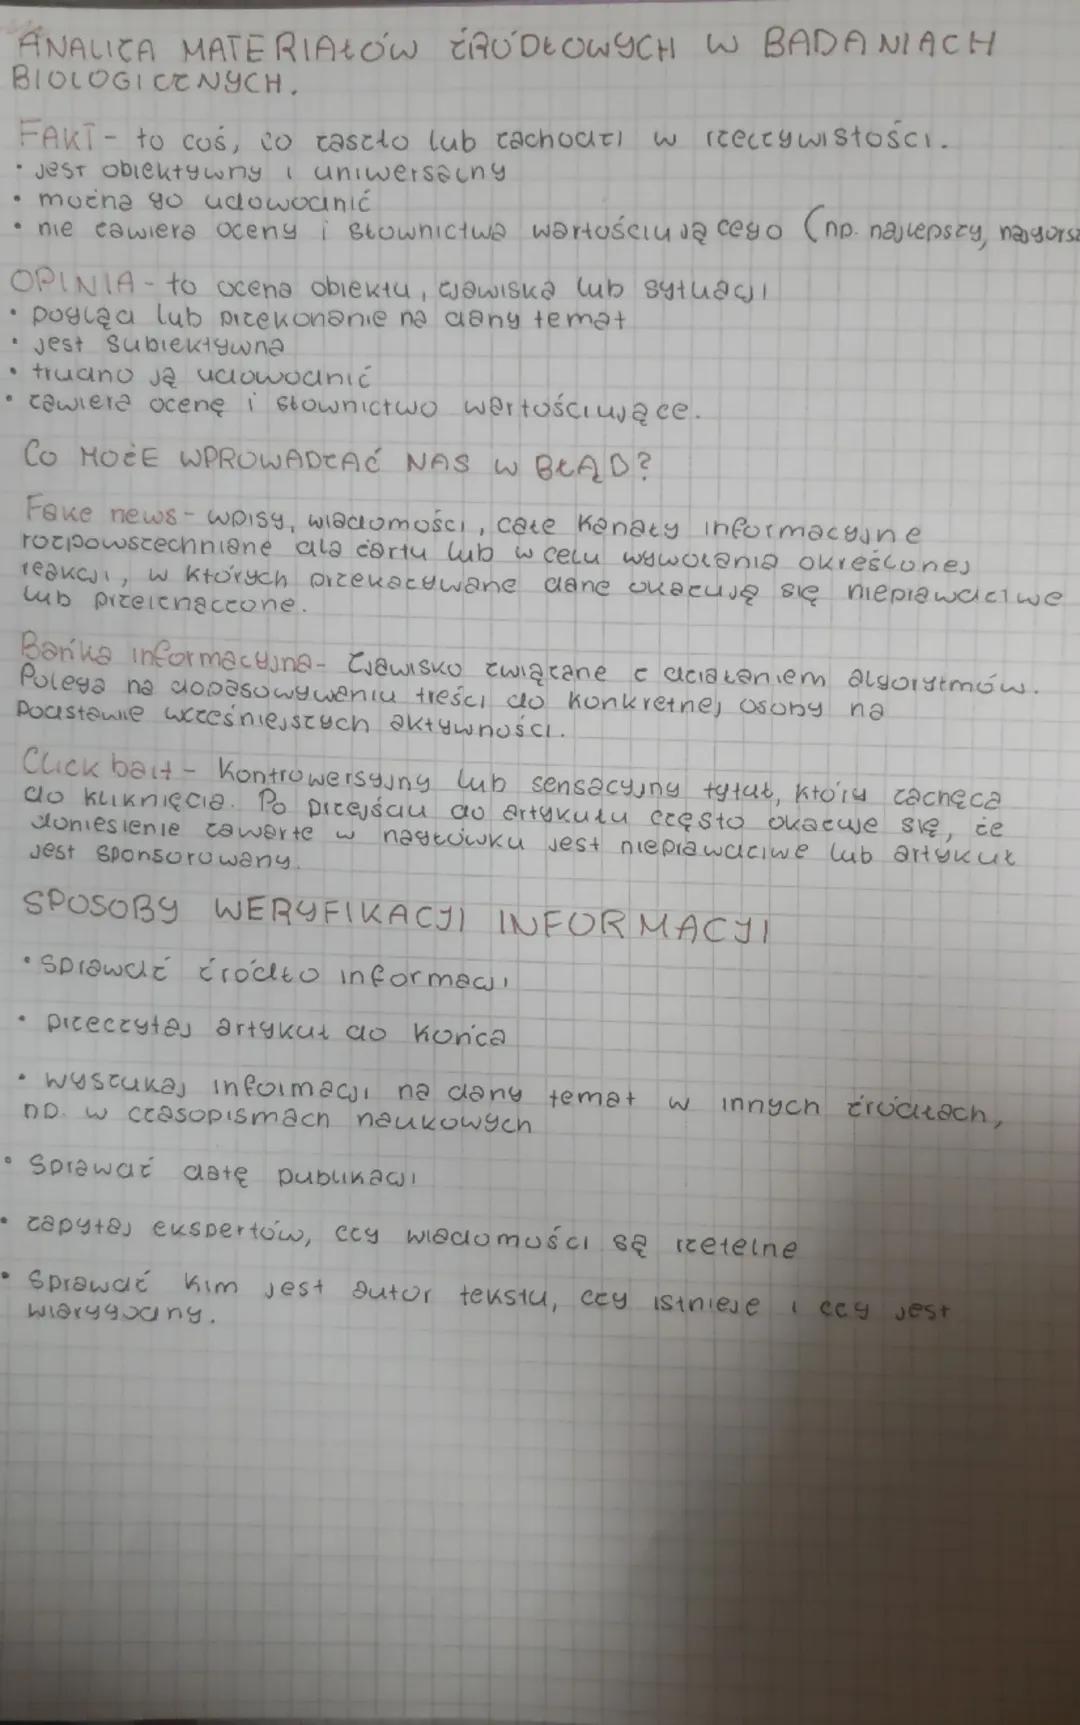 ANALIZA MATERIAŁÓW ŹRÓDŁOWYCH W BADANIACH
BIOLOGICZNYCH.
FAKT - to coś, co zaszło lub zachodzi w rzeczywistości.
• jest obiektywny i uniwersalny
• można go udowodnić
• nie zawiera oceny i słownictwa wartościującego (np. najlepszy, najgorsz
OPINIA - to ocena obiektu, zjawiska lub sytuacji
• pogląd lub przekonanie na dany temat
• jest subiektywna
• trudno ją udowodnić
• zawiera ocenę i słownictwo wartościujące.
CO MOŻE WPROWADZAĆ NAS W BŁĄD?
Fake news - wpisy, wiadomości, całe kanały informacyjne
rozpowszechniane dla żartu lub w celu wywołania określonej
reakcji, w których przekazywane dane okazują się nieprawdziwe
lub przeinaczone.
Bańka informacyjna - Zjawisko związane z działaniem algorytmów.
Polega na dopasowywaniu treści do konkretnej osoby na
podstawie wcześniejszych aktywności.
Click bait - Kontrowersyjny lub sensacyjny tytuł, który zachęca
do kliknięcia. Po przejściu do artykułu często okazuje się, że
doniesienie zawarte w nagłówku jest nieprawdziwe lub artykuł
jest sponsorowany.
SPOSOBY WERYFIKACJI INFORMACJI
• sprawdź źródło informacji
• przeczytaj artykuł do końca
• wyszukaj informacji na dany temat w innych źródłach,
np. w czasopismach naukowych
• sprawdź datę publikacji
• zapytaj ekspertów, czy wiadomości są rzetelne
• sprawdź kim jest autor tekstu, czy istnieje i czy jest
wiarygodny.